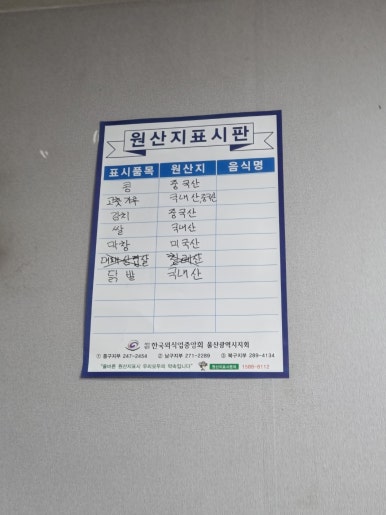 원산지표시판
표시품목 원산지 음식명
콩 중국산
고춧가루 국내산,중국산
김치 중국산
쌀 국내산
막창 미국산
대패삼겹살 칠레산
닭발 국내산
한국외식업중앙회 울산광역시지회
① 중구지부 247-2454 ② 남구지부 271-2289 ③ 북구지부 289-4134
"올바른 원산지표시 우리모두의 약속입니다" 원산지표시문의 1588-8112